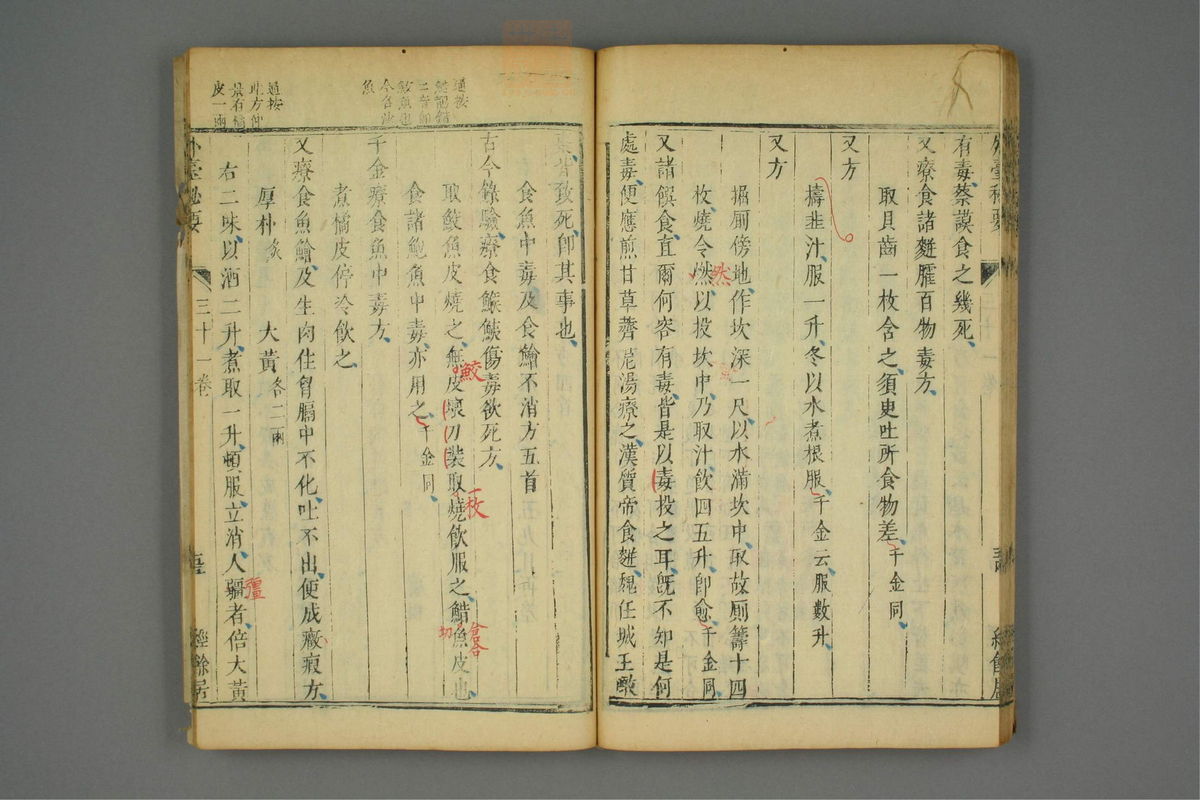 有毒蔡謨食之幾死
又療食諸䴵臛百物毒方
取貝齒一枚含之須臾吐所食物差千金同
又方
擣韭汁服一升冬以水煮根服千金云服數升
又方
掘厠傍地作坎深一尺以水滿坎中取故厠籌十四
枚燒令燃以投坎中乃取汁飲四五升即愈千金同
然
又諸饌食直爾何容有毒皆是以毒投之耳旣不知是何
處毒便應煎甘草薺苨湯療之漢質帝食䴵魏任城王
皆致死即其事也
食魚中毒及食鱠不消方五首
古今錄驗療食鯸鮧傷毒欲死方
取鮫魚皮燒之無皮壞刀裝取燒飲服之䱜魚皮也
鮫
一枚
倉各
切
食諸鮑魚中毒亦用之千金同
千金療食魚中毒方
煮橘皮停冷飲之
又療食魚鱠及生肉住胷膈中不化吐不出便成癥瘕方
厚朴炙 大黃各二兩
右二味以酒二升煮取一升頓服立消人彊者倍大黃
彊
外臺秘要 三十一卷 經餘居
魚
通按
此方仲
景有橘
皮一兩